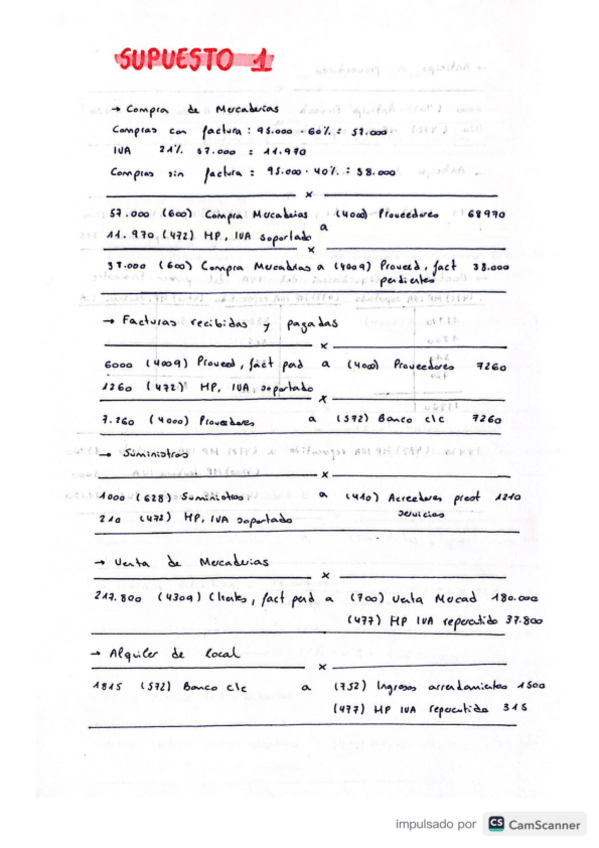 SUPUESTO 1
→ Compra de Mercaderias
Compras con factura : 95.000 · 60% = 57.000
IVA 21% 57.000 = 11.970
Compras sin factura : 95.000 · 40% = 38.000
x
57.000 (600) Compra Mercaderias a (4000) Proveedores 68970
11.970 (472) HP, IVA soportado
x
38.000 (600) Compra Mercaderias a (4009) Proveed, fact 38.000
pendientes
→ Facturas recibidas y pagadas
x
6000 (4009) Proveed, fact pend a (4000) Proveedores 7260
1260 (472) HP, IVA, soportado
x
7.260 (4000) Proveedores a (572) Banco c/c 7260
→ Suministros
x
1000 (628) Suministros a (410) Acreedores prest 1210
servicios
210 (472) HP, IVA soportado
→ Venta de Mercaderias
x
217.800 (4309) Clientes, fact pend a (700) Venta Mercad 180.000
(477) HP IVA repercutido 37.800
→ Alquiler de local
x
1815 (572) Banco c/c a (752) Ingresos arrendamientos 1500
(477) HP IVA repercutido 315
impulsado por CS CamScanner